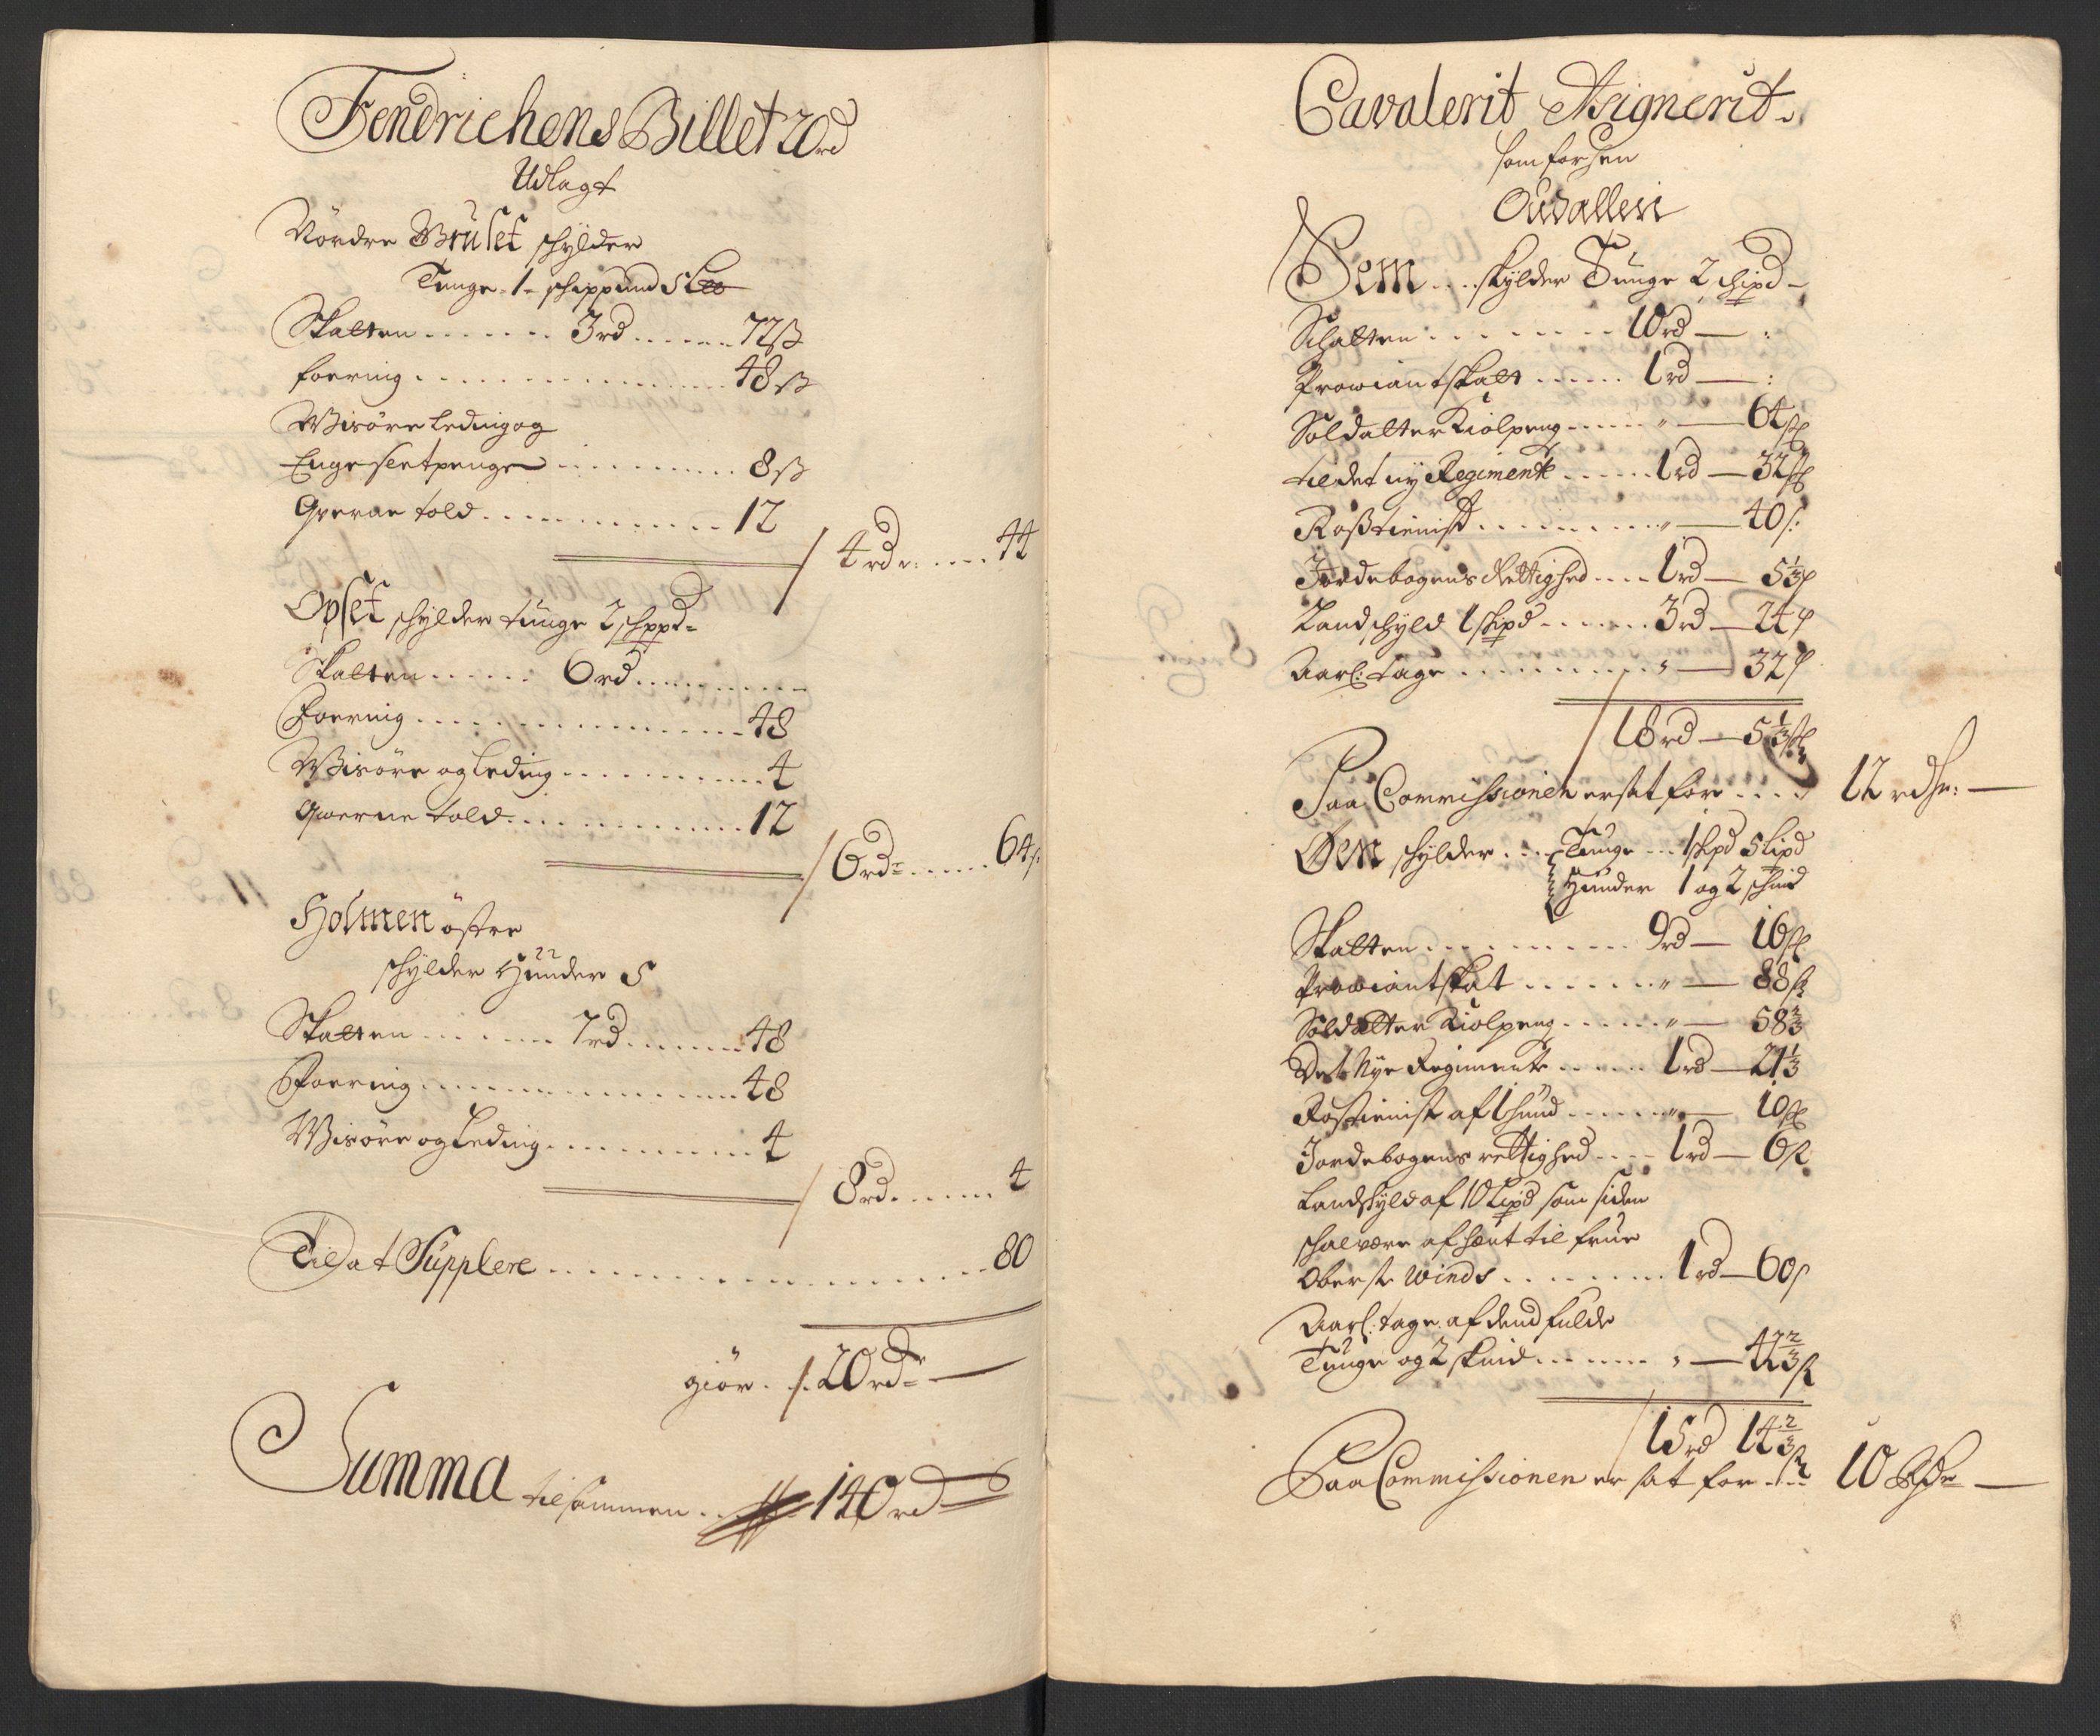 Fendrichens Billet 20 rd
Udlagt
Nördre Bruset schylder
Tunge 1 schippund 5 L℔
Skatten ....... 3 rd ...... 72 ß
foering ................ 48 ß
Wisöre Leding og
Enge sletpenge .......... 8 ß
Qverne told ............ 12
/ 4 rdr: .... 44
Opset schylder tunge 2 schppd=
Skatten ...... 6 rd ..........
Foering ................ 48
Wisöre og Leding .......... 4
Qwerne told ............ 12
/ 6 rdr ..... 64 s:
Holmen östre
schylder Hünder 5
Skatten ....... 7 rd ...... 48
Foering ................ 48
Wisöre og Leding .......... 4
/ 8 rd ...... 4
Til at Supplere ...................... 80
giör . /. 20 rdr= —
Summa tilsammen .. 140 rd
Cavalerit Asignerit.
som forsen
Oudallen
Sem .... skylder Tunge 2 schipd –
Schatten ......... 10 rd — :
Prowiantskatt ...... 1 rd — :
Soldatter Kiolpeng ..... " — 64 ß
til det ny Regimente ...... 1 rd — 32 ß
Roßtienist .......... " — 40 s:
Jordebogens Rettighed .... 1 rd — 5 1/3 ß
Landschyld 1 skipd ....... 3 rd — 24 ß
Aarl: tage .......... " — 32 ß
/ 18 rd — 5 1/3 ß
Paa Commissionen ersat for .... 12 rdr: —
Øen schylder .... Tunge ... 1 skpd 5 Lipd
Hünder 1 og 2 schind
Skatten .......... 9 rd — 16 ß
Prowiantskat ....... " — 88 ß
Soldatter Kiolpeng ...... " — 58 2/3
Det Nye Regimente ...... 1 rd — 21 1/3
Rostienist af 1 hund ...... " — 10 ß
Jordebogens rettighed .... 1 rd — 6 ß
Landskyld af 10 Lipd som siden
schal være afhænt til frue
Oberste Winds ........ 1 rd — 60 s
Aarl: tage af dend fulde
Tunge og 2 skind ...... " — 42 2/3 ß
/ 15 rd 14 2/3 ß
Paa Commissionen er sat for ... 10 Rdr —